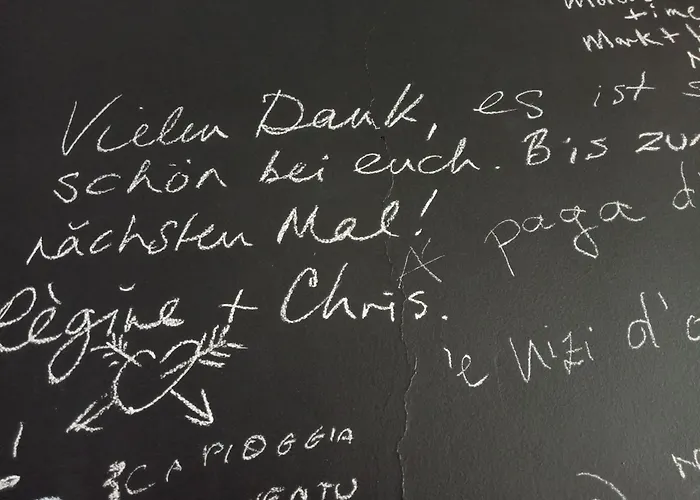 time
Markt
Vielen Dank, es ist s
schön bei euch. Bis zum
nächsten Mal!
Règine + Chris.
A paga di
'e hizi d'o
PIOGGIA
VENTU